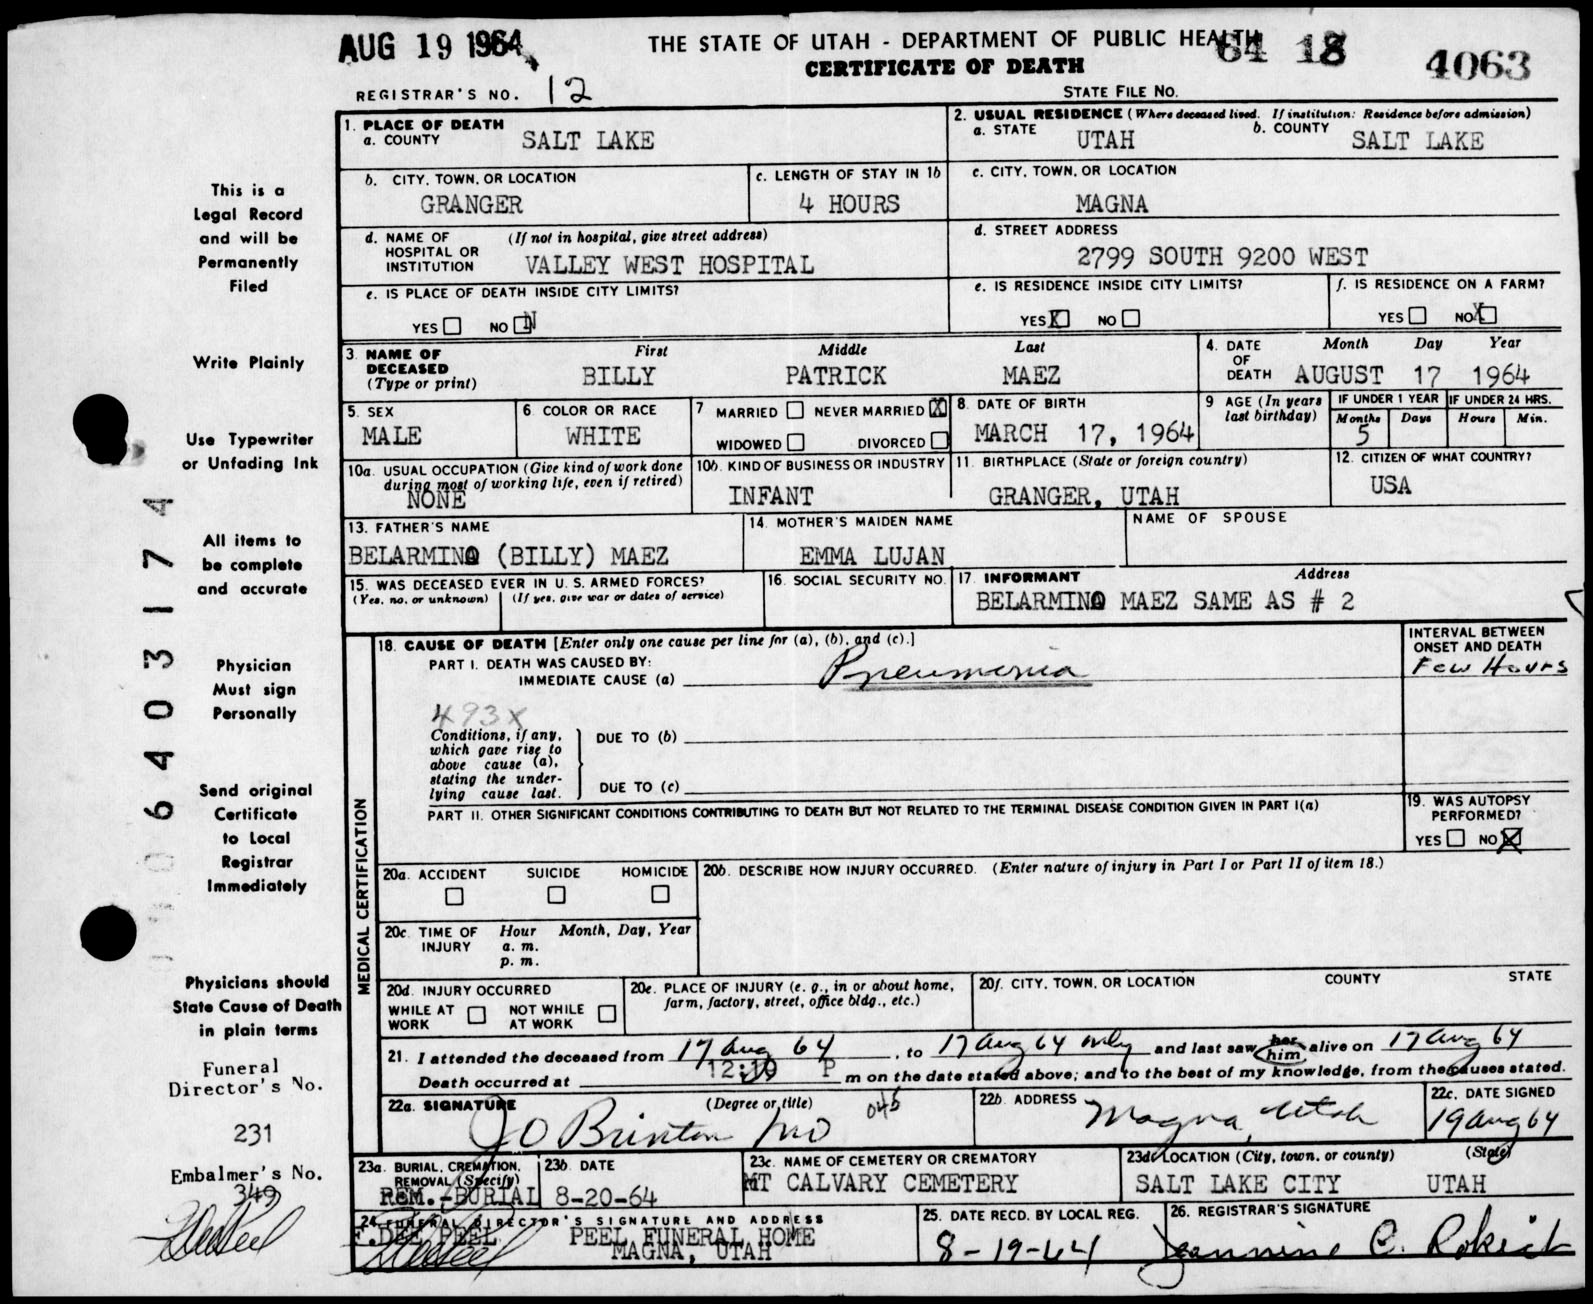 AUG 19 1964
THE STATE OF UTAH - DEPARTMENT OF PUBLIC HEALTH
64 18 4063
CERTIFICATE OF DEATH
REGISTRAR'S NO. 12
STATE FILE NO.
1. PLACE OF DEATH
a. COUNTY SALT LAKE
2. USUAL RESIDENCE (Where deceased lived. If institution: Residence before admission)
a. STATE UTAH b. COUNTY SALT LAKE
b. CITY, TOWN, OR LOCATION GRANGER
c. LENGTH OF STAY IN 1b 4 HOURS
c. CITY, TOWN, OR LOCATION MAGNA
d. NAME OF HOSPITAL OR INSTITUTION (If not in hospital, give street address)
VALLEY WEST HOSPITAL
d. STREET ADDRESS
2799 SOUTH 9200 WEST
e. IS PLACE OF DEATH INSIDE CITY LIMITS?
YES NO N
e. IS RESIDENCE INSIDE CITY LIMITS?
YES X NO
f. IS RESIDENCE ON A FARM?
YES NO X
3. NAME OF DECEASED (Type or print)
First Middle Last
BILLY PATRICK MAEZ
4. DATE OF DEATH Month Day Year
AUGUST 17 1964
5. SEX MALE
6. COLOR OR RACE WHITE
7 MARRIED NEVER MARRIED X
WIDOWED DIVORCED
8. DATE OF BIRTH MARCH 17, 1964
9 AGE (In years last birthday)
IF UNDER 1 YEAR IF UNDER 24 HRS.
Months Days Hours Min.
5
10a. USUAL OCCUPATION (Give kind of work done during most of working life, even if retired)
NONE
10b. KIND OF BUSINESS OR INDUSTRY
INFANT
11. BIRTHPLACE (State or foreign country)
GRANGER, UTAH
12. CITIZEN OF WHAT COUNTRY?
USA
13. FATHER'S NAME
BELARMINO (BILLY) MAEZ
14. MOTHER'S MAIDEN NAME
EMMA LUJAN
NAME OF SPOUSE
15. WAS DECEASED EVER IN U. S. ARMED FORCES?
(Yes, no, or unknown) (If yes, give war or dates of service)
16. SOCIAL SECURITY NO.
17. INFORMANT Address
BELARMINO MAEZ SAME AS # 2
MEDICAL CERTIFICATION
18. CAUSE OF DEATH [Enter only one cause per line for (a), (b), and (c).]
PART I. DEATH WAS CAUSED BY:
IMMEDIATE CAUSE (a) Pneumonia
INTERVAL BETWEEN ONSET AND DEATH
Few Hours
493x
Conditions, if any, which gave rise to above cause (a), stating the underlying cause last.
DUE TO (b)
DUE TO (c)
PART II. OTHER SIGNIFICANT CONDITIONS CONTRIBUTING TO DEATH BUT NOT RELATED TO THE TERMINAL DISEASE CONDITION GIVEN IN PART I(a)
19. WAS AUTOPSY PERFORMED?
YES NO X
20a. ACCIDENT SUICIDE HOMICIDE
20b. DESCRIBE HOW INJURY OCCURRED. (Enter nature of injury in Part I or Part II of item 18.)
20c. TIME OF INJURY Hour Month, Day, Year
a. m.
p. m.
20d. INJURY OCCURRED
WHILE AT WORK NOT WHILE AT WORK
20e. PLACE OF INJURY (e. g., in or about home, farm, factory, street, office bldg., etc.)
20f. CITY, TOWN, OR LOCATION COUNTY STATE
21. I attended the deceased from 17 Aug 64, to 17 Aug 64 only and last saw her him alive on 17 Aug 64
Death occurred at 12:10 P m on the date stated above; and to the best of my knowledge, from the causes stated.
22a. SIGNATURE (Degree or title) 045
J O Brinton MD
22b. ADDRESS Magna, Utah
22c. DATE SIGNED
19 Aug 64
23a. BURIAL, CREMATION, REMOVAL (Specify)
REM.-BURIAL
23b. DATE
8-20-64
23c. NAME OF CEMETERY OR CREMATORY
MT CALVARY CEMETERY
23d. LOCATION (City, town, or county) (State)
SALT LAKE CITY UTAH
24. FUNERAL DIRECTOR'S SIGNATURE AND ADDRESS
F. DEE PEEL PEEL FUNERAL HOME
MAGNA, UTAH
25. DATE RECD. BY LOCAL REG.
8-19-64
26. REGISTRAR'S SIGNATURE
Jeannine C. Rokich
This is a
Legal Record
and will be
Permanently
Filed
Write Plainly
Use Typewriter
or Unfading Ink
All items to
be complete
and accurate
Physician
Must sign
Personally
Send original
Certificate
to Local
Registrar
Immediately
Physicians should
State Cause of Death
in plain terms
Funeral
Director's No.
231
Embalmer's No.
349
0 0 6 4 0 3 1 7 4